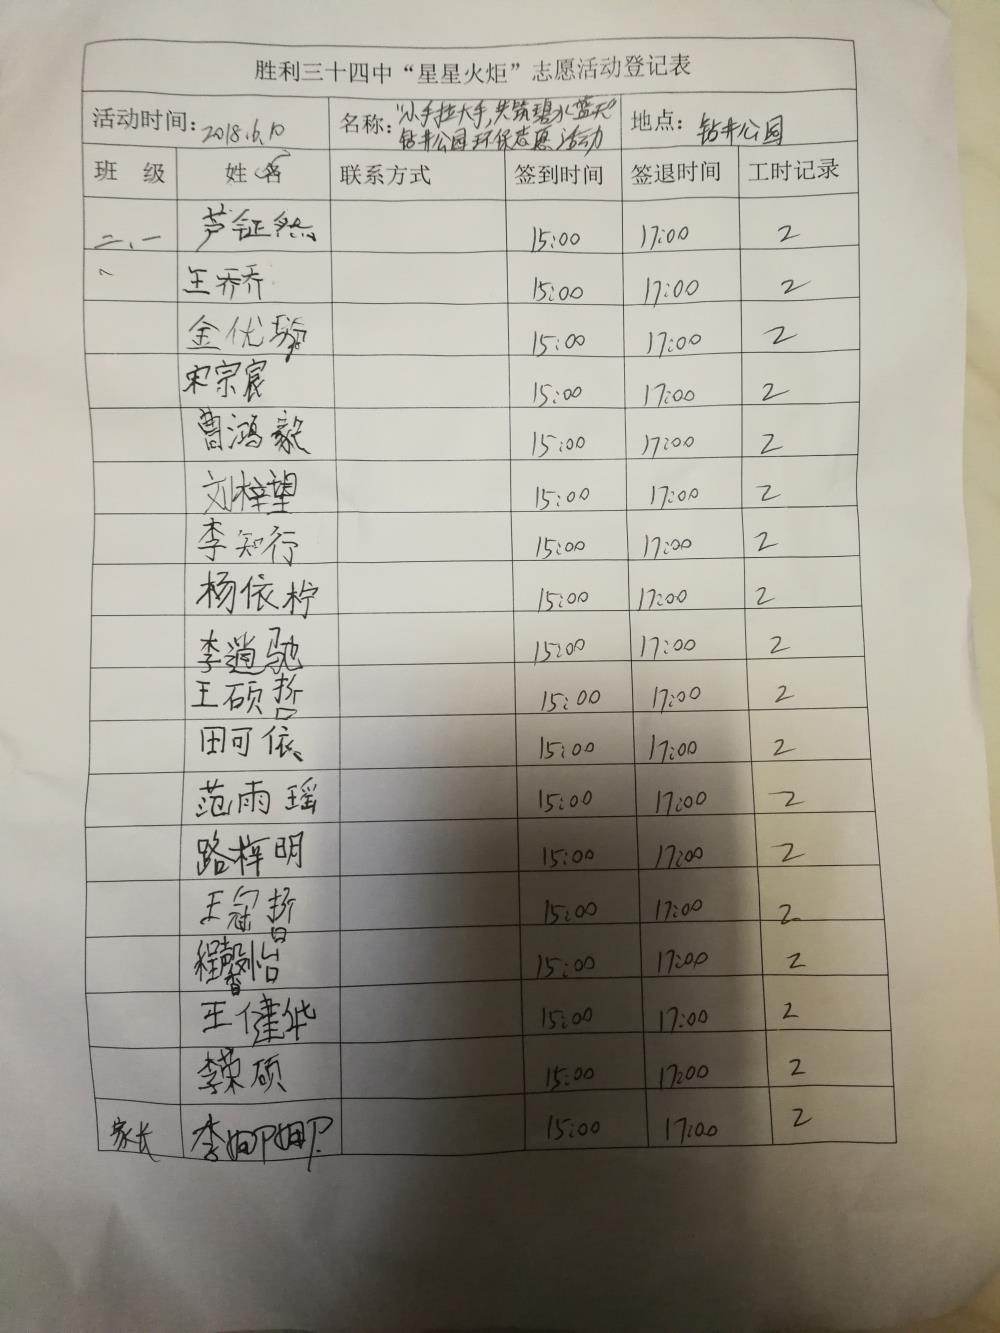 胜利三十四中“星星火炬”志愿活动登记表
活动时间: 2018.6.10 名称: “小手拉大手,共筑碧水蓝天” 地点: 钻井公园
钻井公园环保志愿活动
班 级 姓 名 联系方式 签到时间 签退时间 工时记录
二、一 芦钲然 15:00 17:00 2
王乔乔 15:00 17:00 2
金优 15:00 17:00 2
宋宗宸 15:00 17:00 2
曹鸿毅 15:00 17:00 2
刘梓望 15:00 17:00 2
李知行 15:00 17:00 2
杨依柠 15:00 17:00 2
李逍驰 15:00 17:00 2
王硕哲 15:00 17:00 2
田可依 15:00 17:00 2
范雨瑶 15:00 17:00 2
路梓明 15:00 17:00 2
王冠哲 15:00 17:00 2
程馨怡 15:00 17:00 2
王健华 15:00 17:00 2
李荣硕 15:00 17:00 2
家长 李姗姗 15:00 17:00 2